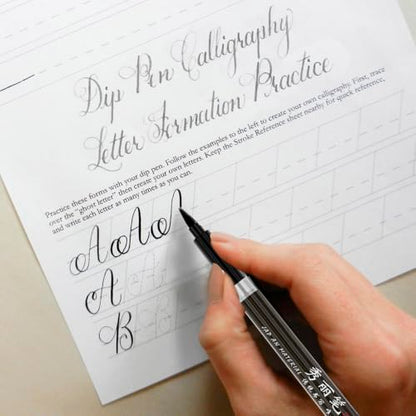 Dip Pen Calligraphy
Letter Formation Practice
Practice these forms with your dip pen. Follow the examples to the left to create your own calligraphy. First, trace
over the "ghost letter" then create your own letters. Keep the Stroke Reference sheet nearby for quick reference,
and write each letter as many times as you can.
A A A A
A A A
B B B
JAPAN MATERIAL
秀丽笔